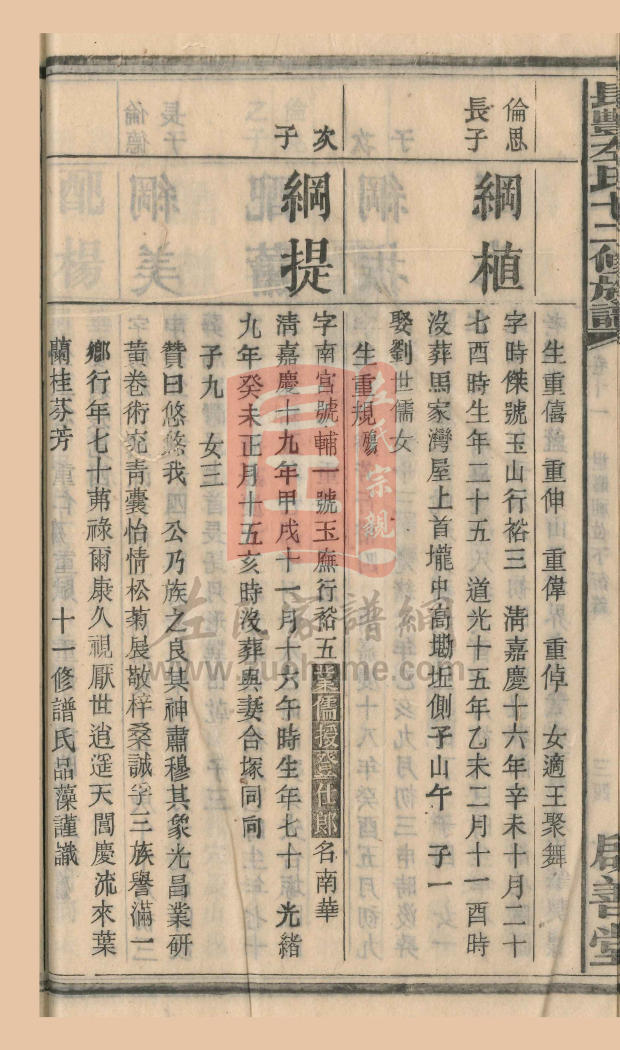 長豐左氏十二修族譜
卷十一
啟善堂
生重僖 重伸 重偉 重倬 女適王聚舞
倫思
長子
綱植
字時傑號玉山行裕三 淸嘉慶十六年辛未十月二十
七酉時生年二十五 道光十五年乙未二月十一酉時
沒葬馬家灣屋上首壠中高墈坵側子山午 子一
娶劉世儒女
生重規
次
子
綱提
字南宮號輔一號玉廡行裕五業儒授登仕郎名南華
淸嘉慶十九年甲戌十一月十六午時生年七十 光緒
九年癸未正月十五亥時沒葬與妻合塚同向
子九 女三
贊曰悠悠我 公乃族之良其神肅穆其象光昌業研
黃卷術究靑囊怡情松菊展敬梓桑誠孚三族譽滿一
鄉行年七十茀祿爾康久視厭世逍遙天閶慶流來葉
蘭桂芬芳 十一修譜氏品藻謹識
左氏宗親
左氏家譜網
www.zuohome.com